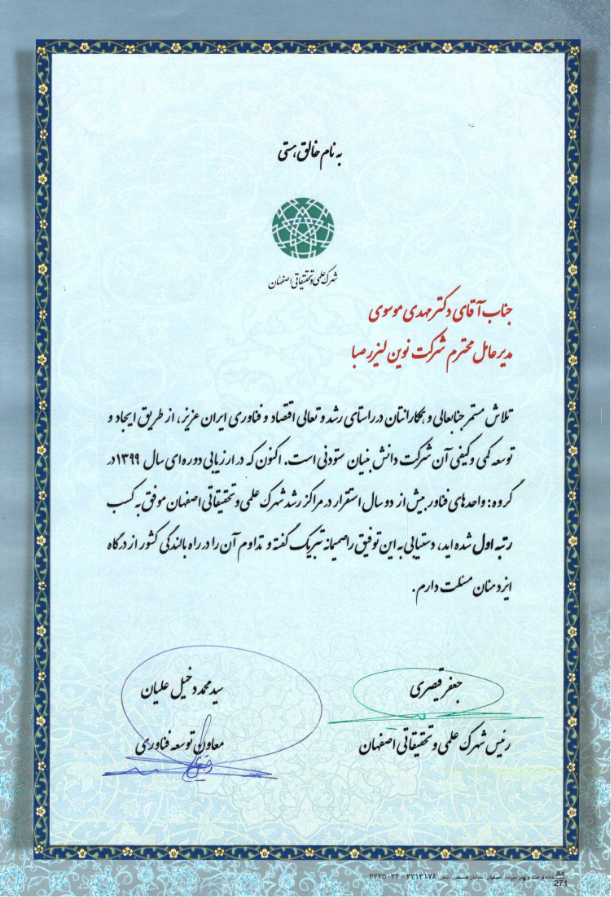 به نام خالق هستی
شهرک علمی و تحقیقاتی اصفهان
جناب آقای دکتر مهدی موسوی
مدیرعامل محترم شرکت نوین لیزر صبا
تلاش مستمر جنابعالی و همکارانتان در راستای رشد و تعالی اقتصاد و فناوری ایران عزیز، از طریق ایجاد و
توسعه کمی و کیفی آن شرکت دانش بنیان ستودنی است. اکنون که در ارزیابی دوره‌ای سال ۱۳۹۹ در
گروه: واحدهای فناور بیش از دو سال استقرار در مراکز رشد شهرک علمی و تحقیقاتی اصفهان موفق به کسب
رتبه اول شده اید، دستیابی به این توفیق را صمیمانه تبریک گفته و تداوم آن را در راه بالندگی کشور از درگاه
ایزد منان مسئلت دارم.
جعفر قیصری
سید محمد دخیل علیان
رئیس شهرک علمی و تحقیقاتی اصفهان
معاون توسعه فناوری
A4
271